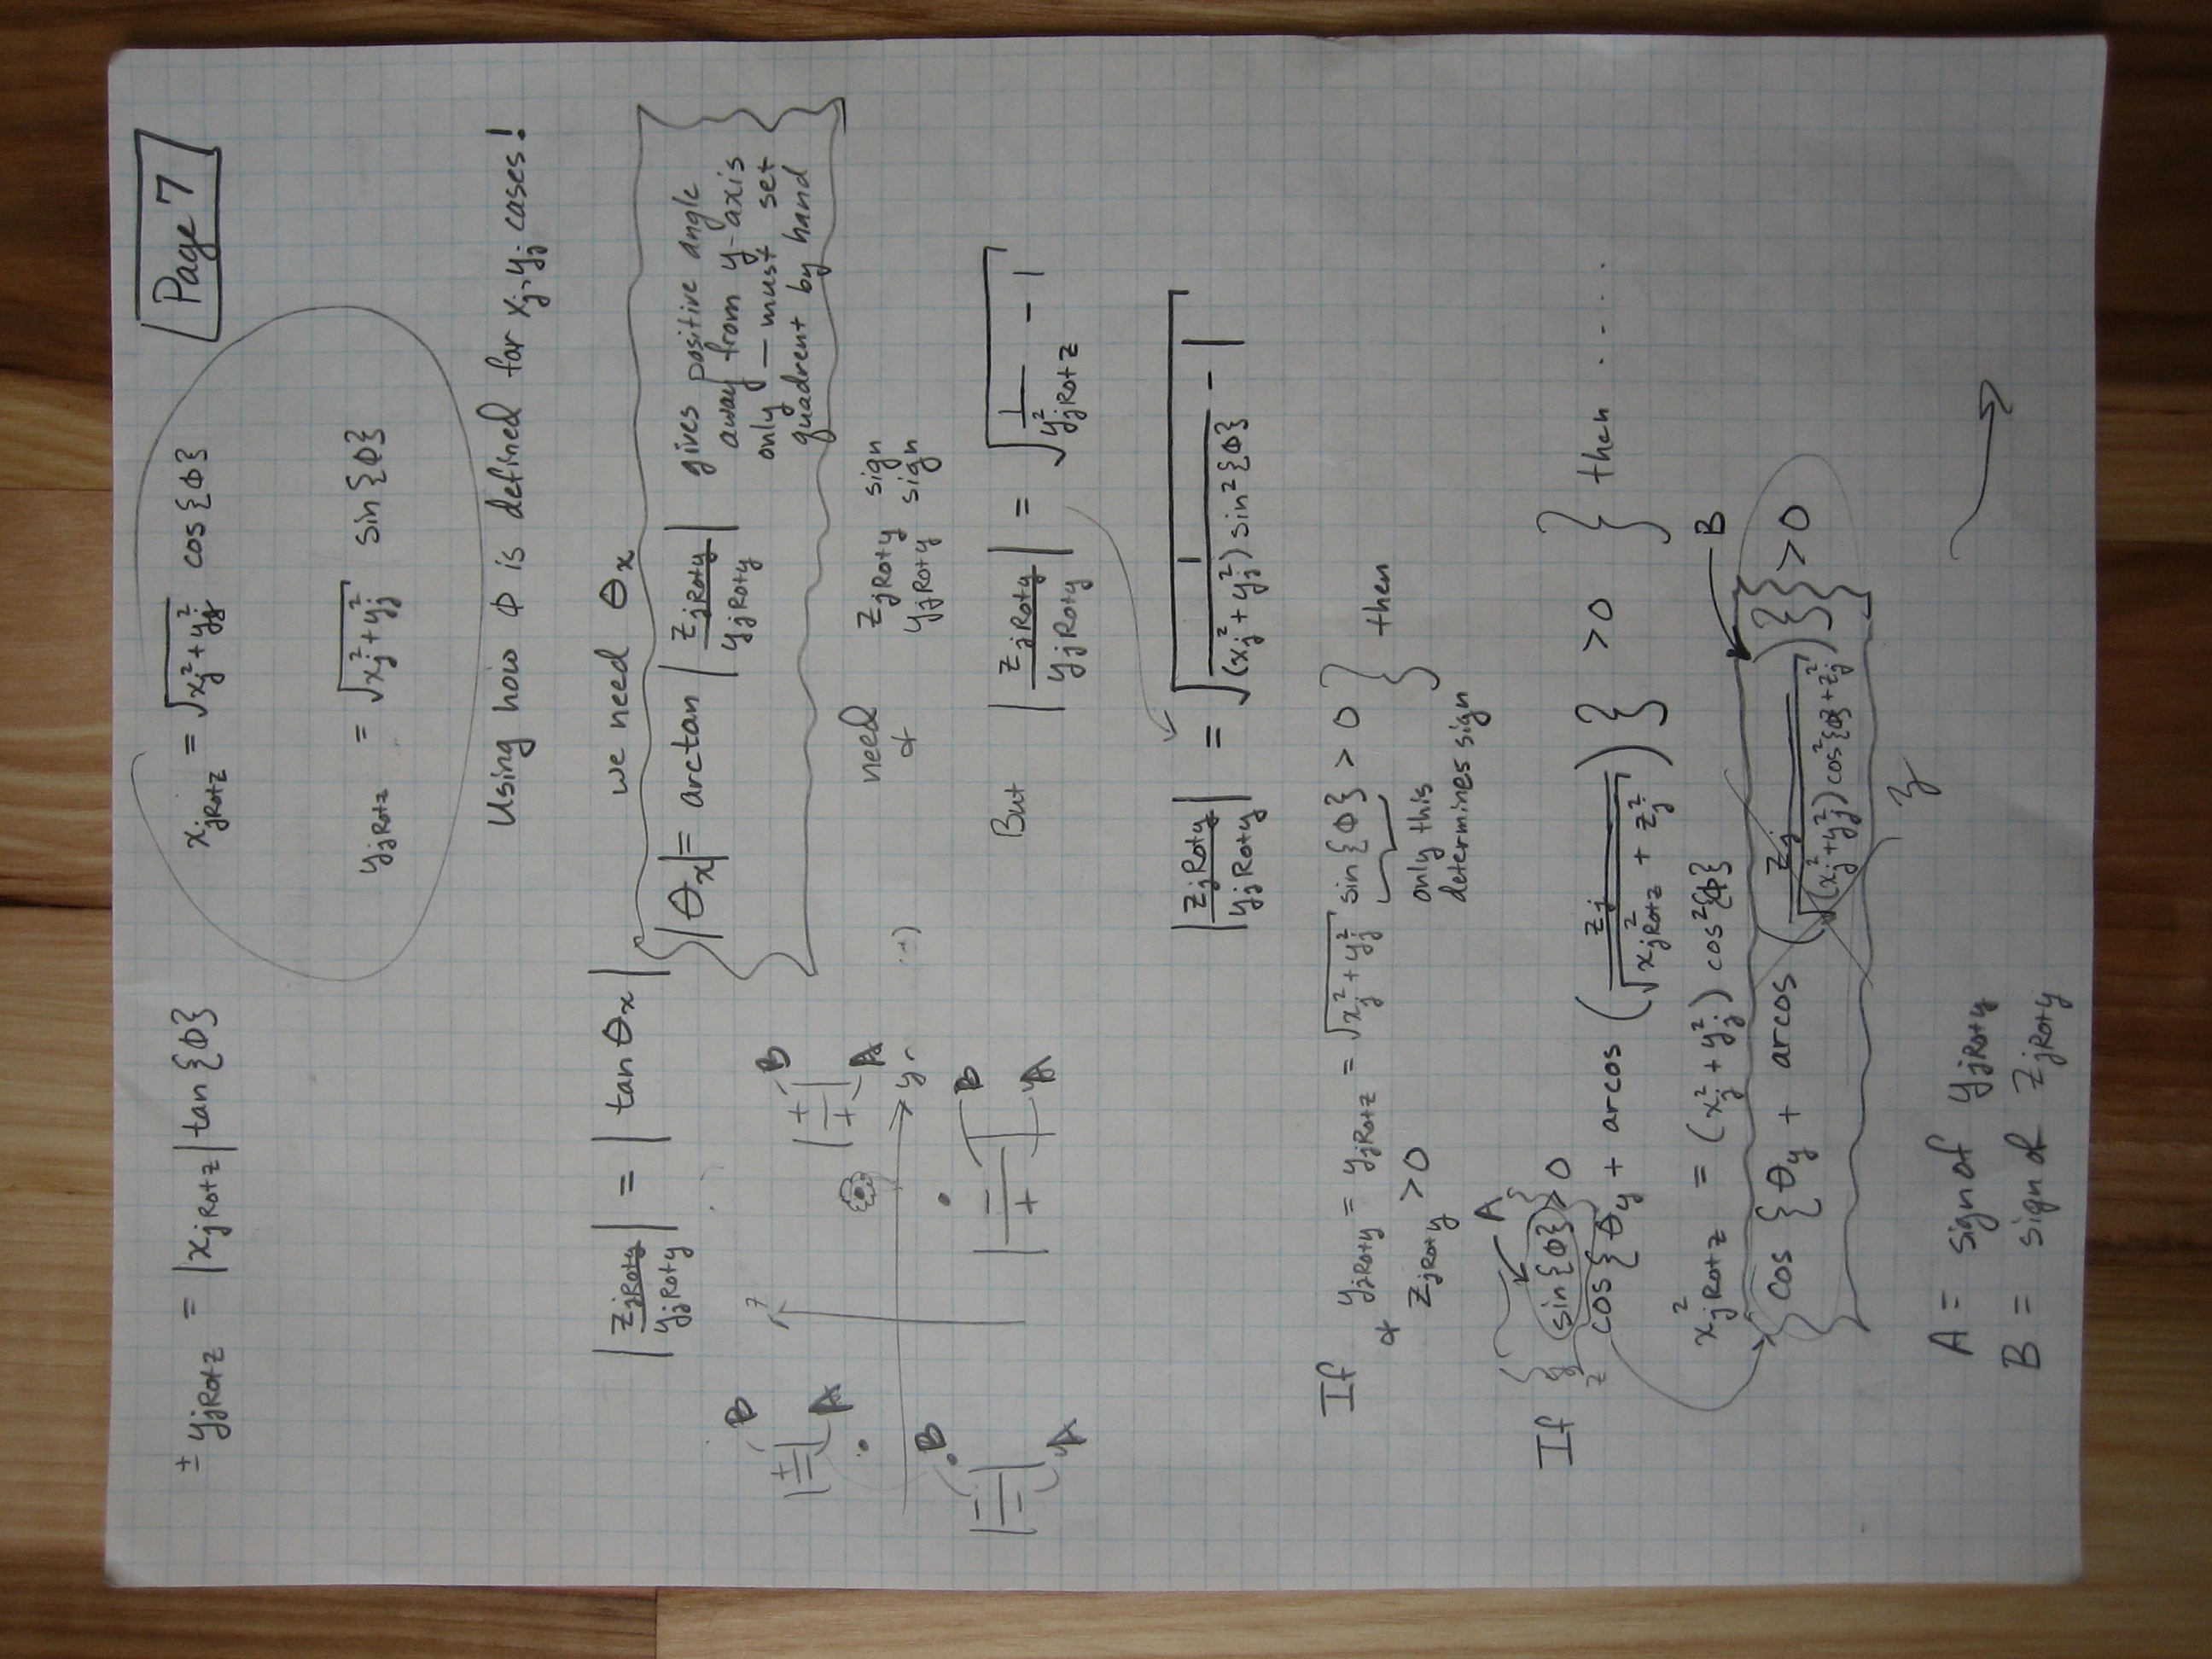 Page 7
± y_jRotz = |x_jRotz| tan{Φ}
x_jRotz = √(x_j² + y_j²) cos{Φ}
y_jRotz = √(x_j² + y_j²) sin{Φ}
Using how Φ is defined for x_j, y_j cases!
|z_jRoty / y_jRoty| = |tan θ_x| we need θ_x
|θ_x| = arctan |z_jRoty / y_jRoty| gives positive angle
away from y-axis
only — must set
quadrent by hand
need z_jRoty sign
& y_jRoty sign
z
|+/-| B A
|+/+| B A
y
|-/-| B A
|-/+| B A
But |z_jRoty / y_jRoty| = √(1/y²_jRotz - 1)
|z_jRoty / y_jRoty| = √(1/((x_j² + y_j²) sin²{Φ}) - 1)
If y_jRoty = y_jRotz = √(x_j² + y_j²) sin{Φ} > 0 } then
& z_jRoty > 0
only this
determines sign
A
If { sin{Φ} > 0
& cos{θ_y + arccos(z_j / √(x²_jRotz + z_j²))} > 0 } then ....
x²_jRotz = (x_j² + y_j²) cos²{Φ}
B
cos{θ_y + arccos(z_j / √((x_j² + y_j²) cos²{Φ} + z_j²))} > 0
A = sign of y_jRoty
B = sign of z_jRoty